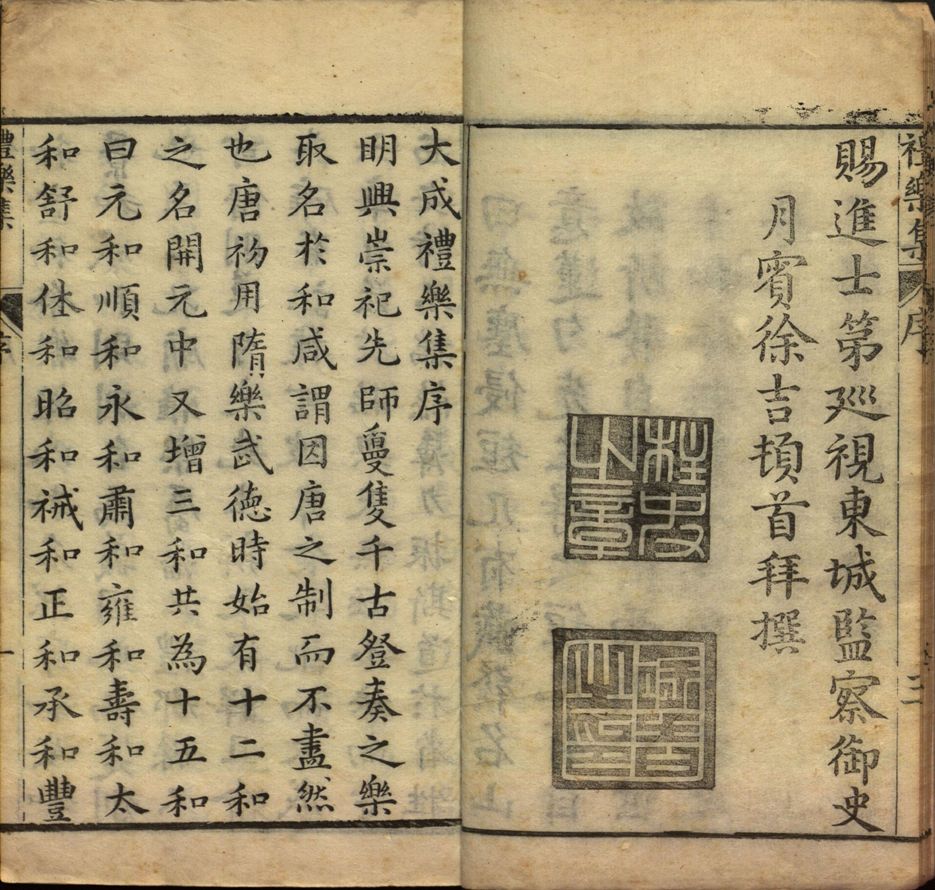 禮樂集
序
三
賜進士第廵視東城監察御史
月賓徐吉頓首拜撰
柱史之章
徐吉之印
大成禮樂集序
明興崇祀先師敻隻千古登奏之樂
取名於和咸謂因唐之制而不盡然
也唐初用隋樂武德時始有十二和
之名開元中又增三和共為十五和
曰元和順和永和肅和雍和壽和太
和舒和休和昭和祴和正和承和豐
禮樂集
序
一